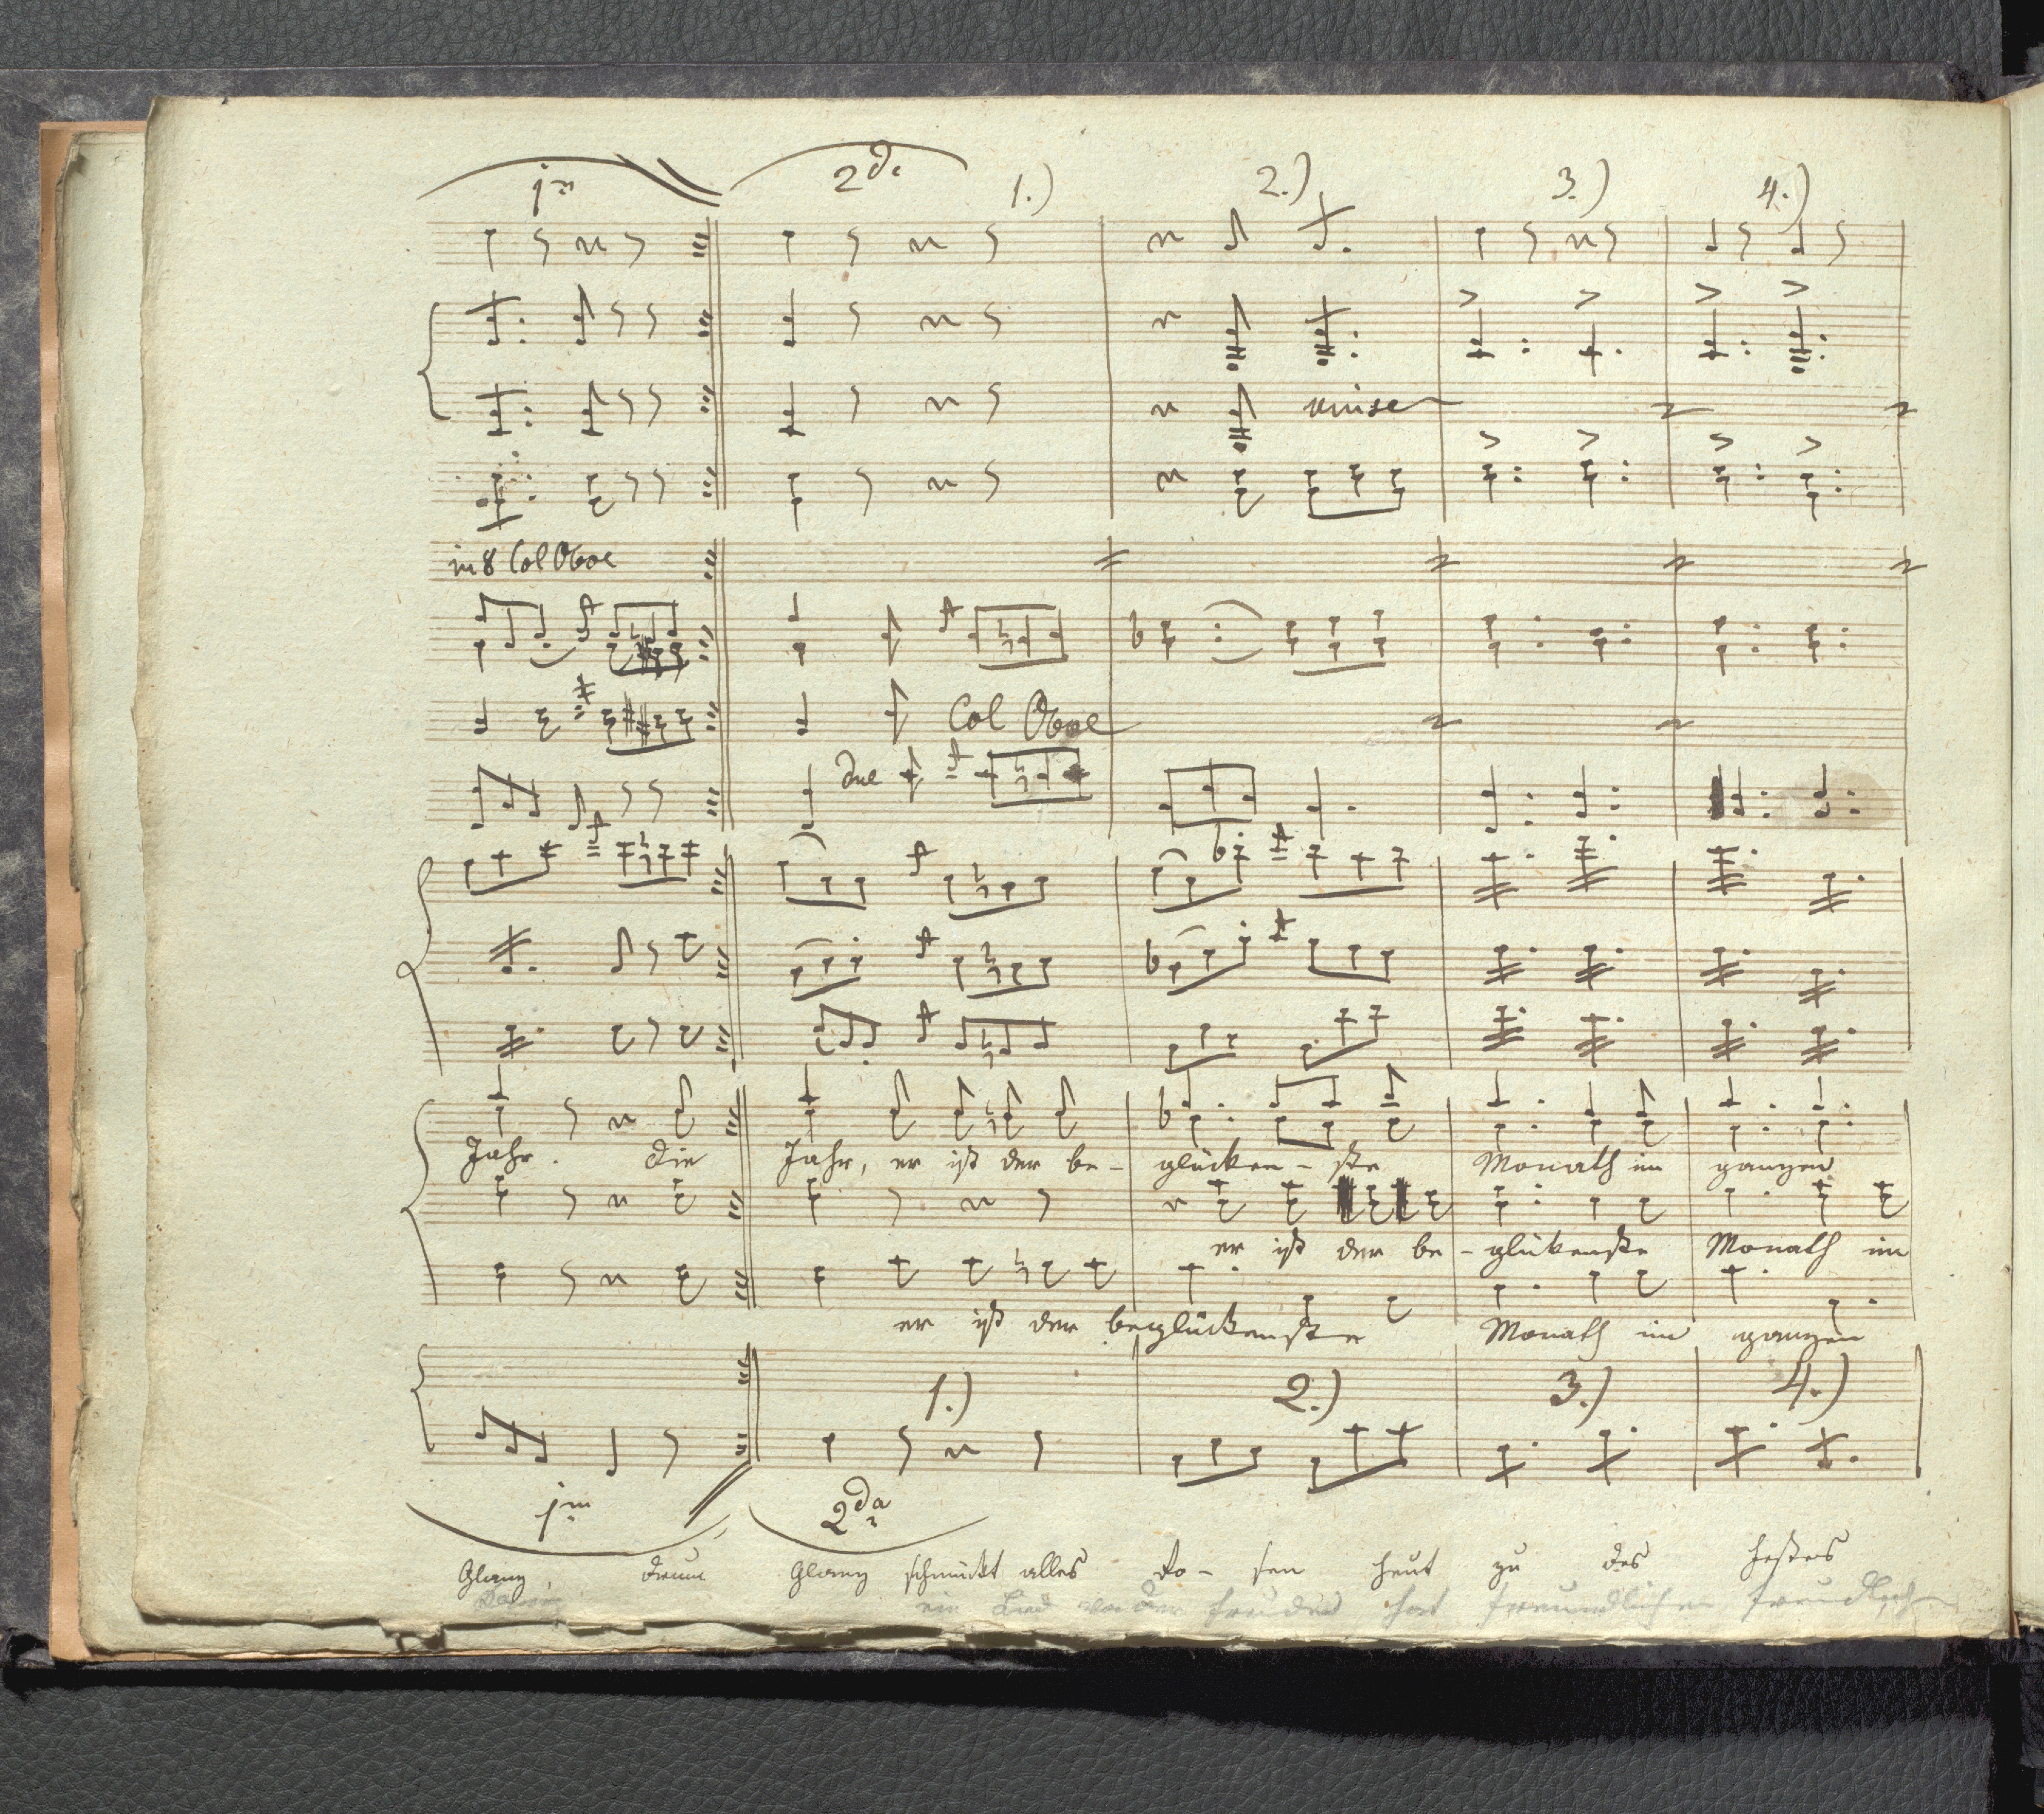 1ma 2da 1.) 2.) 3.) 4.)
unise
in 8 Col Oboe
Col Oboe
due
Jahr. die Jahr, er ist der be- glücken- ste Monath im ganzen
er ist der be- glükenste Monath im
er ist der beglückenste Monath im ganzen
1.) 2.) 3.) 4.)
1ma 2da
Glanz, drum Glanz schmückt alles Ro- sen heut zu des Festes
ein Lied der freundlichen